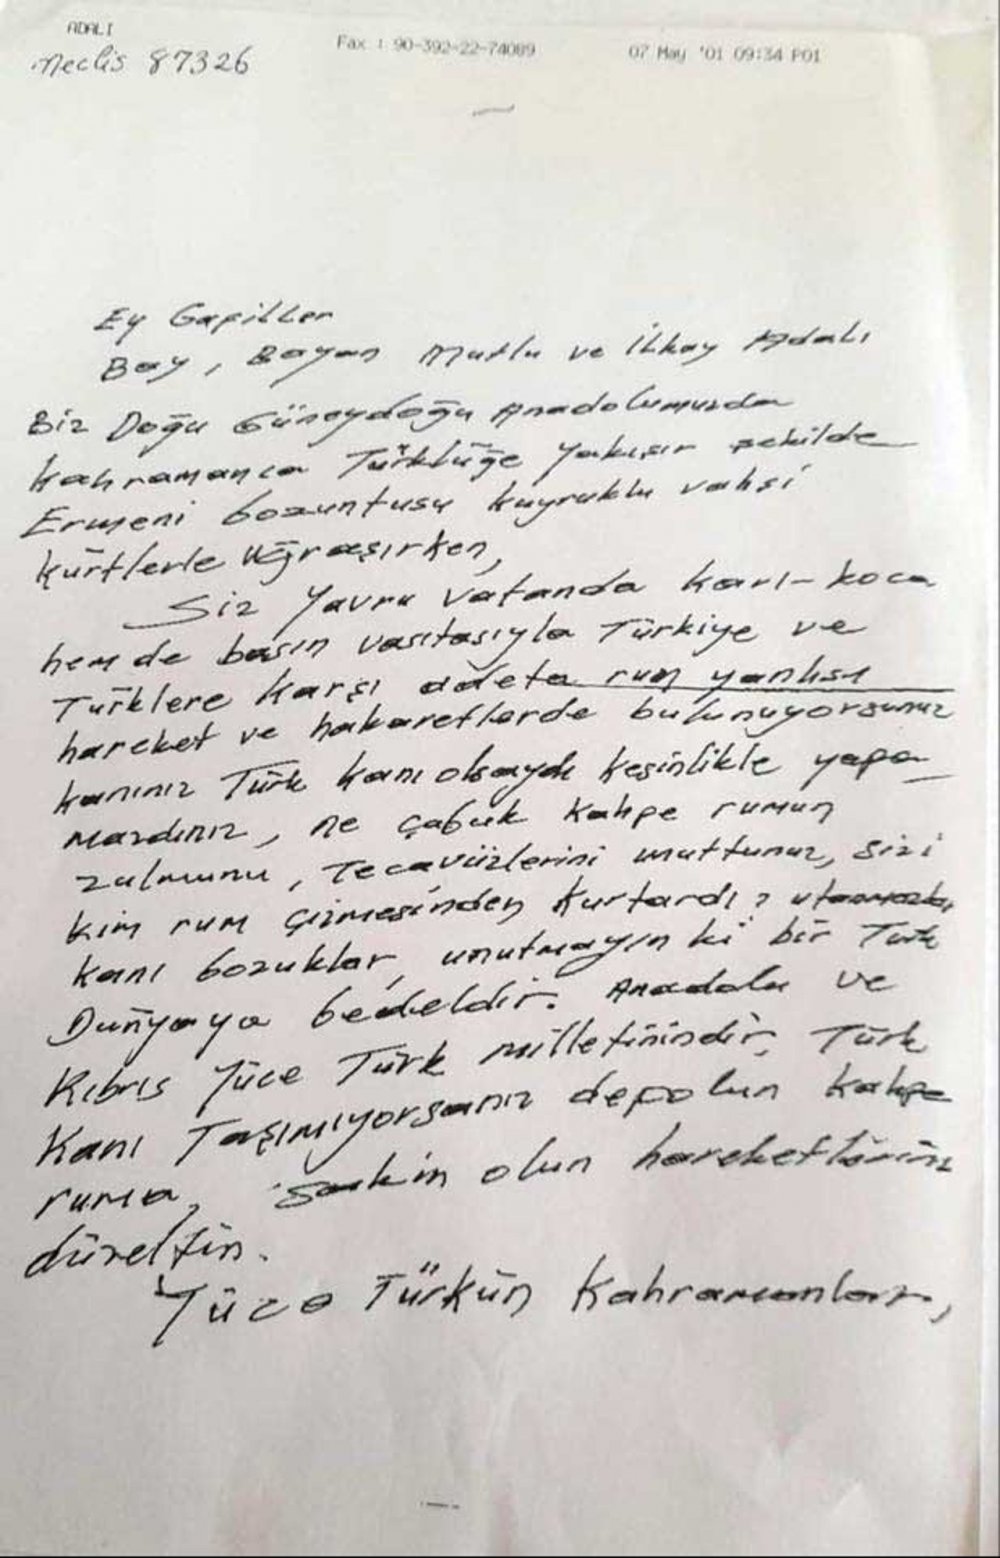 ADALI
Meclis 87326
Fax : 90-392-22-74089
07 May '01 09:34 P01
Ey Gafiller
Bay, Bayan Mutlu ve İlkay Adalı
Biz Doğu Güneydoğu Anadolumuzda
kahramanca Türklüğe yakışır şekilde
Ermeni bozuntusu kuyruklu vahşi
kürtlerle uğraşırken,
Siz Yavru vatanda karı-koca
hem de basın vasıtasıyla Türkiye ve
Türklere karşı adeta rum yanlısı
hareket ve hakaretlerde bulunuyorsunuz
kanınız Türk kanı olsaydı kesinlikle yapa
mazdınız, ne çabuk kahpe rumun
zulmunu, Tecavüzlerini unuttunuz, sizi
kim rum çizmesinden kurtardı?
kanı bozuklar, unutmayın ki bir Türk
Dünyaya bedeldir. Anadolu ve
Kıbrıs Yüce Türk milletinindir, Türk
Kanı Taşımıyorsanız depolun kahpe
ruma, sakin olun hareketlerinizi
düzeltin.
Yüce Türkün Kahramanları,